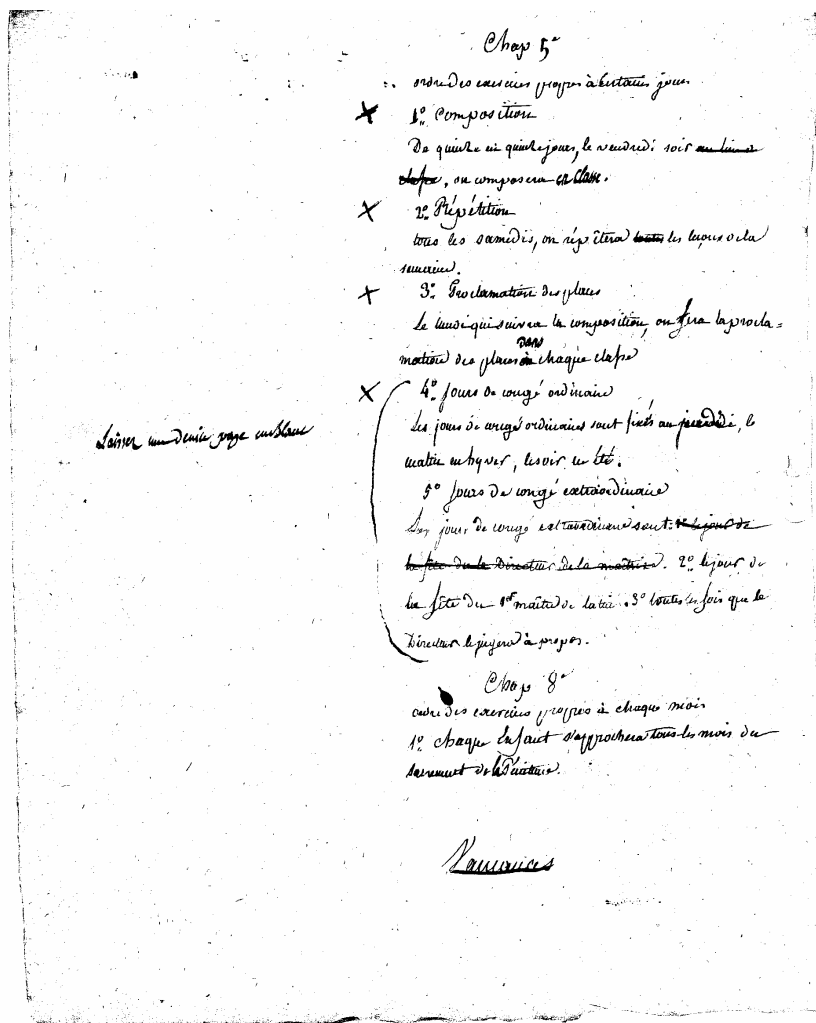 Chap 5e
ordre des exercices propres à certains jours
1o Composition
De quinze en quinze jours, le vendredi soir au lieu de
classe, on composera en classe.
2o Répétition
tous les samedis, on répêtera toutes les leçons de la
semaine.
3o Proclamation des places
Le lundi qui suivra la composition, on fera la procla=
mation des places dans chaque classe
4o Jours de congé ordinaire
Les jours de congé ordinaires sont fixés au, le
matin en hyver, le soir en été.
Laisser une demie page en blanc
5o Jours de congé extraordinaire
Les jours de congé extraordinaire sont: 1o le jour de
la fête de le Directeur de la maîtrise. 2o le jour de
la fête du 1er maître de latin. 3o toutes les fois que le
Directeur le jugera à propos.
Chap 8e
ordre des exercices propres à chaque mois
1o chaque Enfant s'approchera tous les mois du
sacrement de la Pénitence.
Vacances